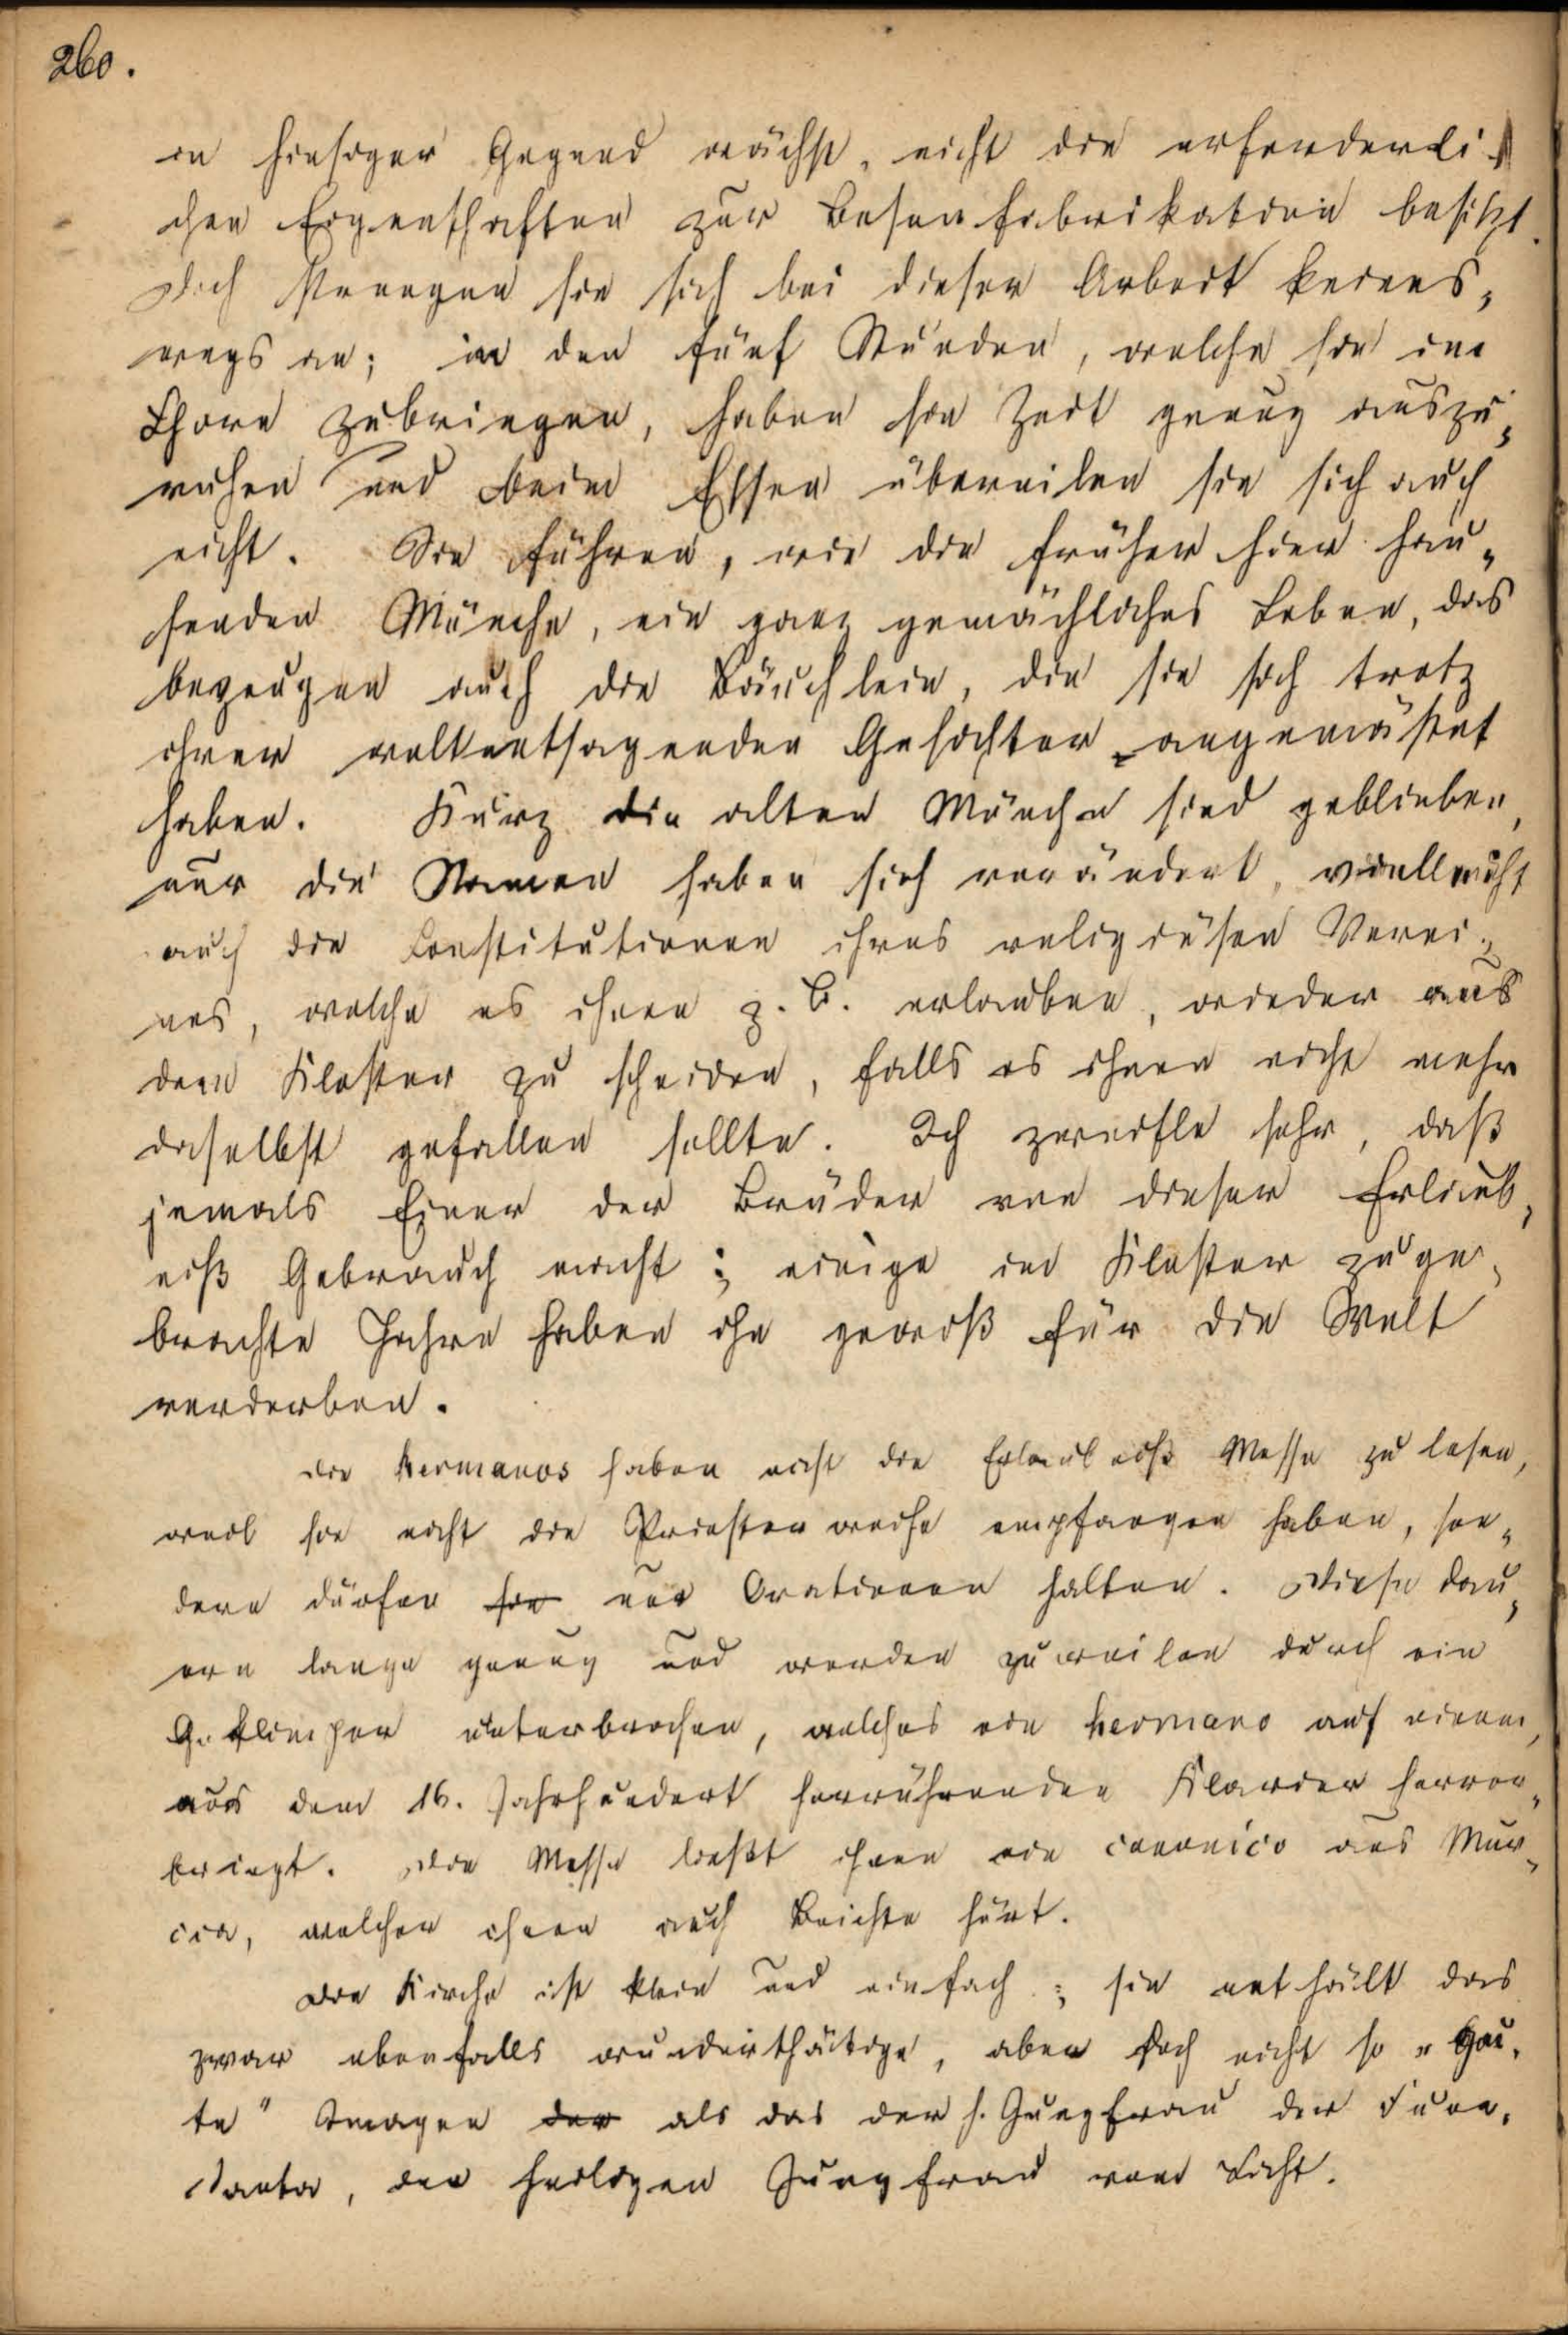 260.
in hiesiger Gegend wächst, nicht die erforderli-
chen Eigenschaften zur Besenfabrikation besitzt.
Doch strengen sie sich bei dieser Arbeit keines„
wegs an; in den fünf Stunden, welche sie im
Chore zubringen, haben sie Zeit genug auszu„
ruhen und beim Essen übereilen sie sich auch
nicht. Sie führen, wie die früher hier hau„
senden Mönche, ein ganz gemächliches Leben, das
bezeugen auch die Bäuchlein, die sie sich trotz
ihrer weltentsagenden Gesichter angemästet
haben. Kurz die alten Mönche sind geblieben,
nur die Namen haben sich verändert, vielleicht
auch die Constitutionen ihres religiösen Verei„
nes, welche es ihnen z. B. erlauben, wieder aus
dem Kloster zu scheiden, falls es ihnen nicht mehr
daselbst gefallen sollte. Ich zweifle sehr, daß
jemals Einer der Brüder von dieser Erlaub„
niß Gebrauch macht; einige im Kloster zuge„
brachte Jahre haben ihn gewiß für die Welt
verdorben.
Die hermanos haben nicht die Erlaubniß Messe zu lesen,
weil sie nicht die Priesterweihe empfangen haben, son„
dern dürfen sie nur Orationen halten. Diese dau„
ern lange genug und werden zuweilen durch ein
Geklimper unterbrochen, welches ein hermano auf einem,
aus dem 16. Jahrhundert herrührenden Klavier hervor„
bringt. Die Messe ließt ihnen ein canonico aus Mur„
cia, welcher ihnen auch Beichte hört.
Die Kirche ist klein und einfach; sie enthält das
zwar ebenfalls wunderthätige, aber doch nicht so „gu„
te" Imagen der als das der h. Jungfrau der Fuen„
santa, der heiligen Jungfrau vom Licht.